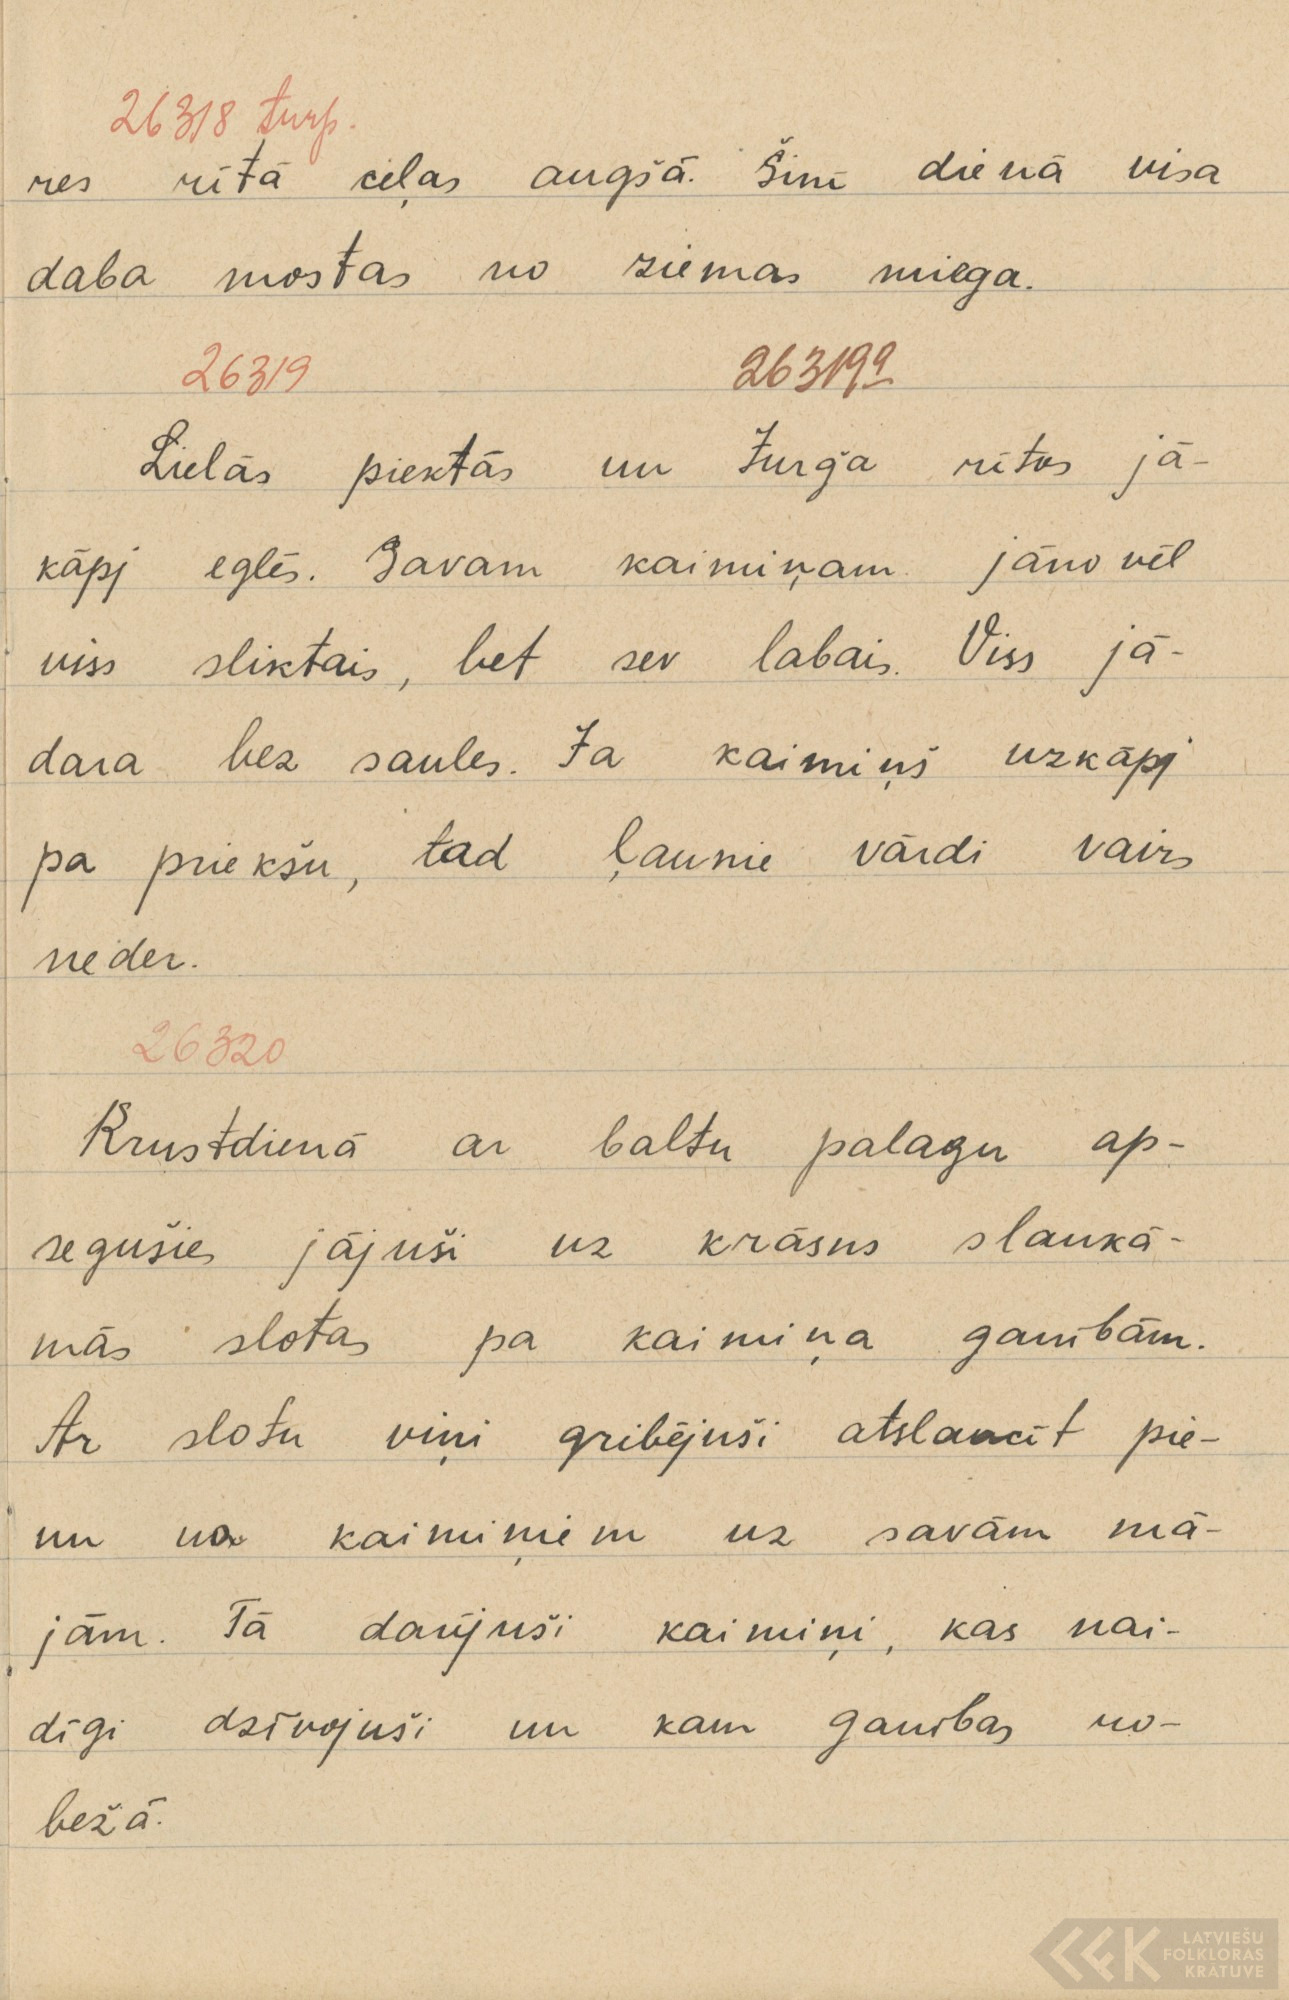 26318 turp.
res rītā ceļas augšā. Šinī dienā visa
daba mostas no ziemas miega.
26319 26319a
Lielās piektās un Jurģa rītos jā-
kāpj eglēs. Savam kaimiņam jānovēl
viss sliktais, bet sev labais. Viss jā-
dara bez saules. Ja kaimiņš uzkāpj
pa priekšu, tad ļaunie vārdi vairs
neder.
26320
Krustdienā ar baltu palagu ap-
segušies jājuši uz krāsns slaukā-
mās slotas pa kaimiņa ganībām.
Ar slotu viņi gribējuši atslaucīt pie-
nu no kaimiņiem uz savām mā-
jām. Tā darījuši kaimiņi, kas nai-
dīgi dzīvojuši un kam ganības ro-
bežā.
LATVIEŠU
FOLKLORAS
KRĀTUVE